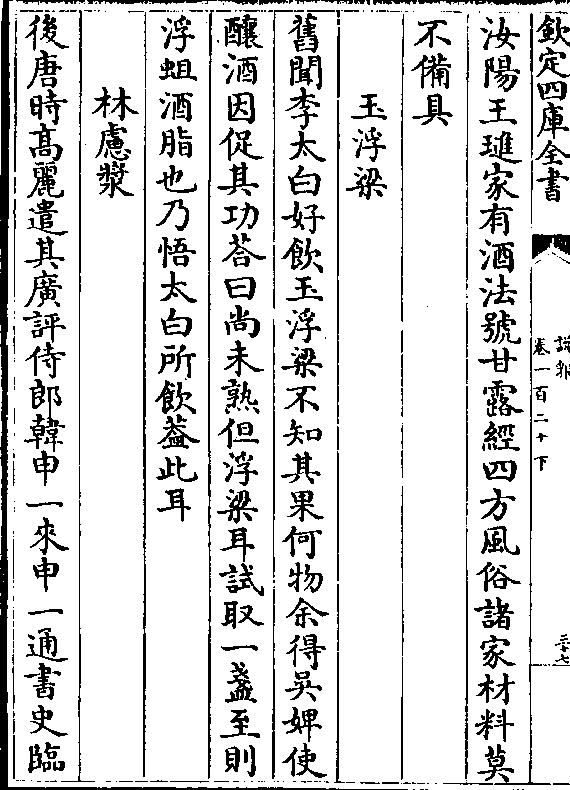 欽定四庫全書
說郛
卷一百二十下
三十七
汝陽王璡家有酒法號甘露經四方風俗諸家材料莫
不備具
玉浮梁
舊聞李太白好飲玉浮梁不知其果何物余得吳婢使
釀酒因促其功荅曰尚未熟但浮梁耳試取一盞至則
浮蛆酒脂也乃悟太白所飲葢此耳
林慮漿
後唐時高麗遣其廣評侍郎韓申一來申一通書史臨